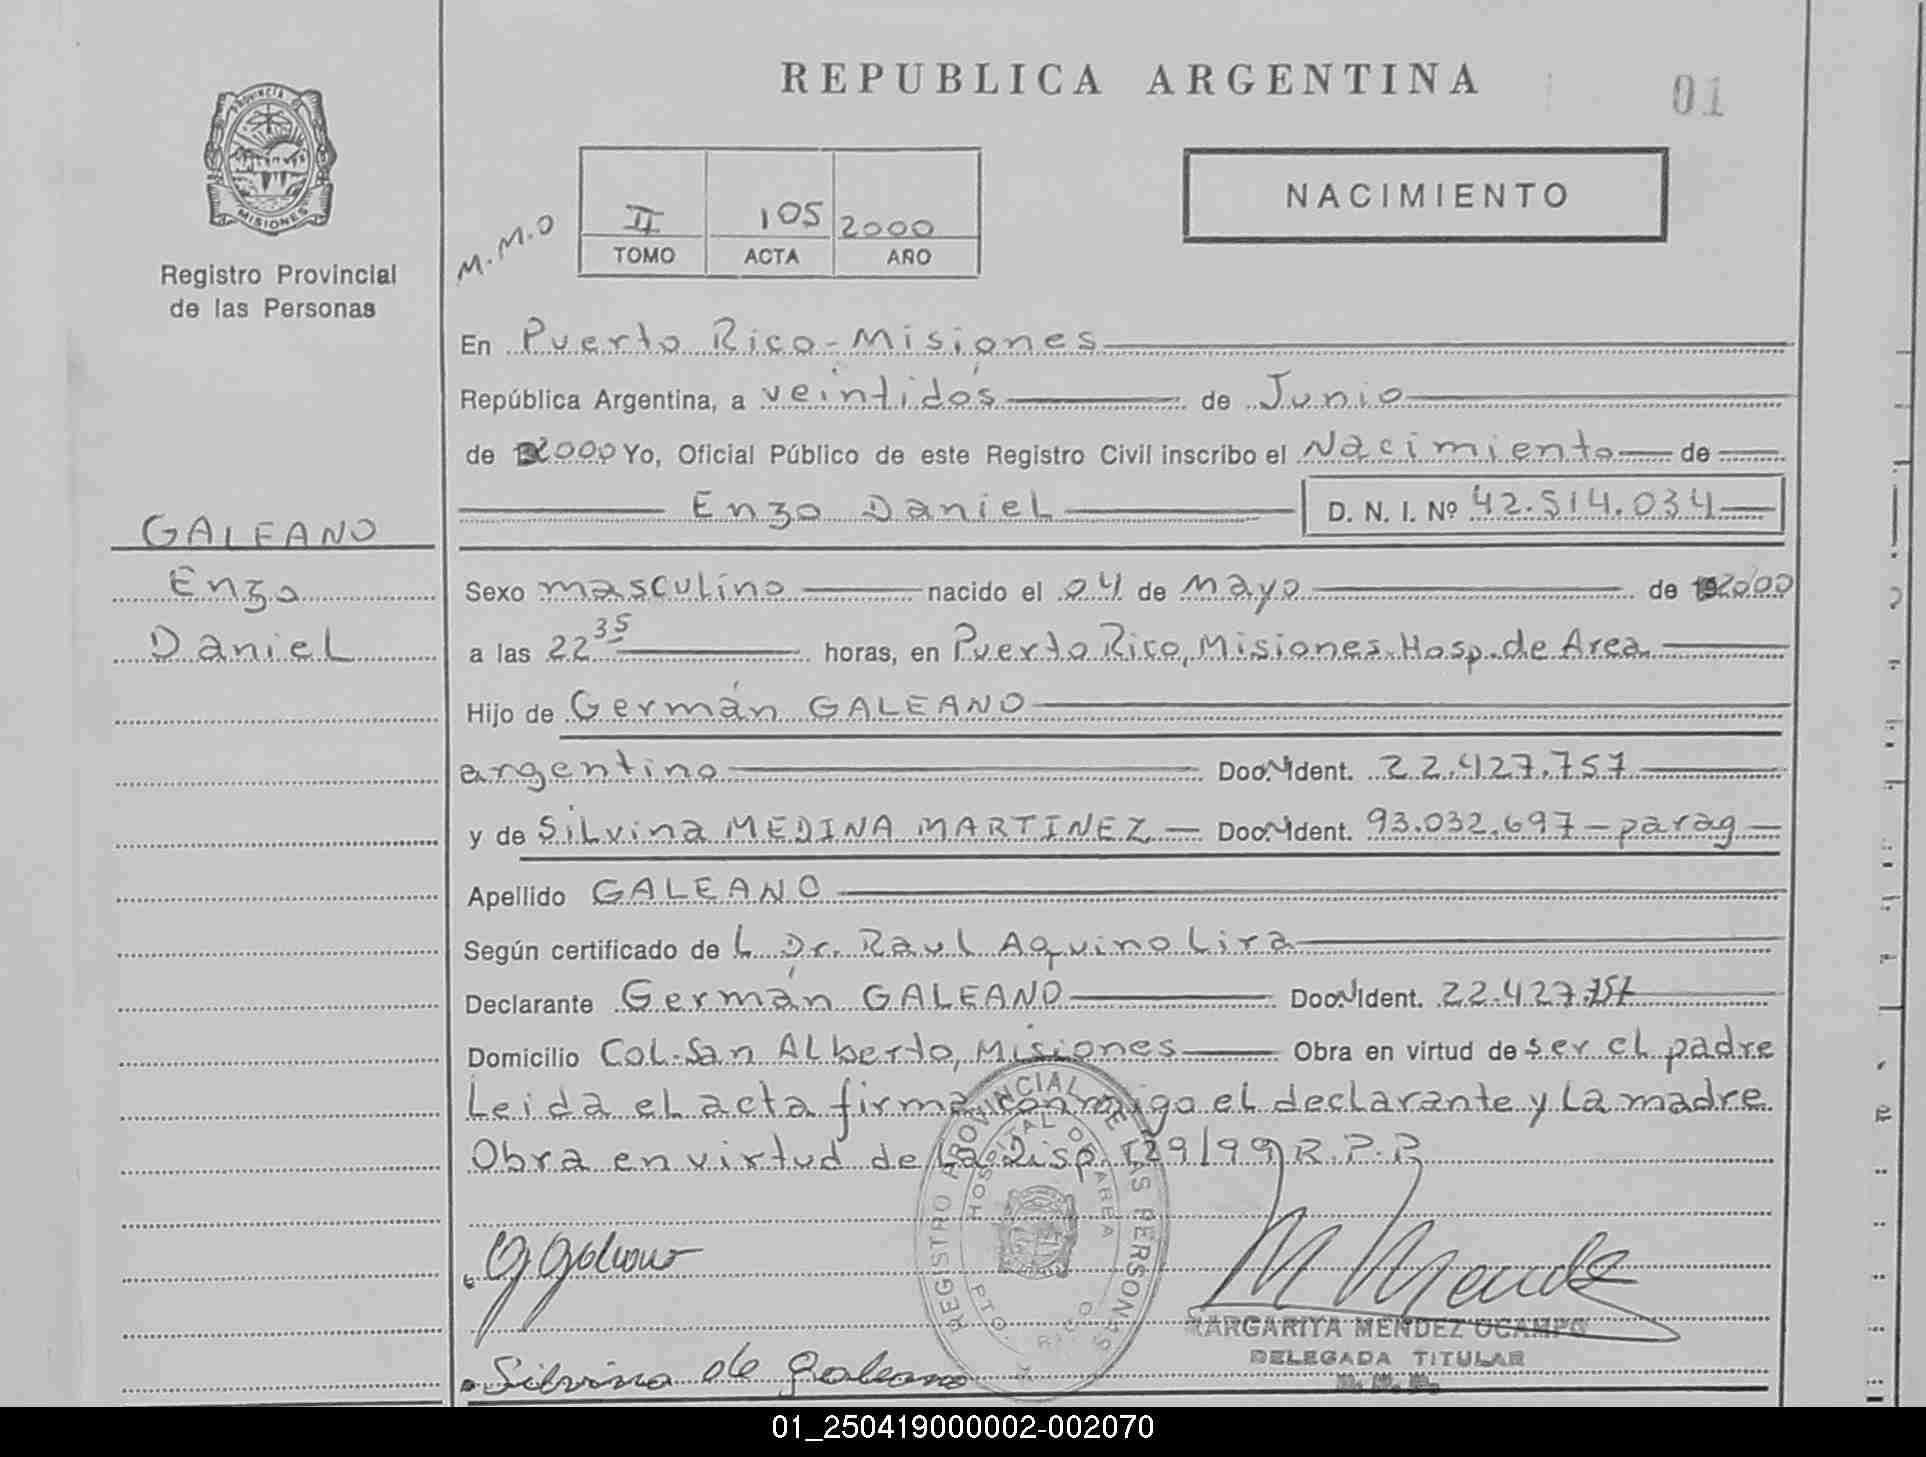 REPUBLICA ARGENTINA
01
PROVINCIA DE
MISIONES
Registro Provincial
de las Personas
M.M.O
II 105 2000
TOMO ACTA AÑO
NACIMIENTO
En Puerto Rico - Misiones
República Argentina, a veintidós de Junio
de 2000 Yo, Oficial Público de este Registro Civil inscribo el Nacimiento de
Enzo Daniel D. N. I. Nº 42.514.034
GALEANO
Enzo
Daniel
Sexo masculino nacido el 04 de Mayo de 2000
a las 22 35 horas, en Puerto Rico, Misiones. Hosp. de Area
Hijo de Germán GALEANO
argentino Doc. Ident. 22.427.757
y de Silvina MEDINA MARTINEZ Doc. Ident. 93.032.697 - parag
Apellido GALEANO
Según certificado de L Dr. Raul Aquino Lira
Declarante Germán GALEANO Doc. Ident. 22.427.757
Domicilio Col. San Alberto, Misiones Obra en virtud de ser el padre
Leida el acta firma conmigo el declarante y la madre
Obra en virtud de la Disp. 129/99 R.P.P
REGISTRO PROVINCIAL DE LAS PERSONAS
HOSPITAL DE AREA
PTO. RICO
G Galeano
M Mendez
MARGARITA MENDEZ OCAMPO
DELEGADA TITULAR
Silvina de Galeano
01_250419000002-002070